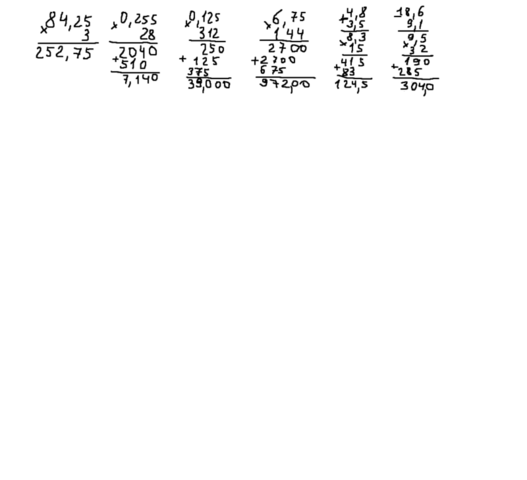 ×84,25
3
252,75
×0,255
28
2040
+510
7,140
×0,125
312
250
+125
375
39,000
×6,75
144
2700
+2700
675
972,00
+4,8
3,5
8,3
×15
415
+83
124,5
18,6
9,1
9,5
×32
190
+285
304,0